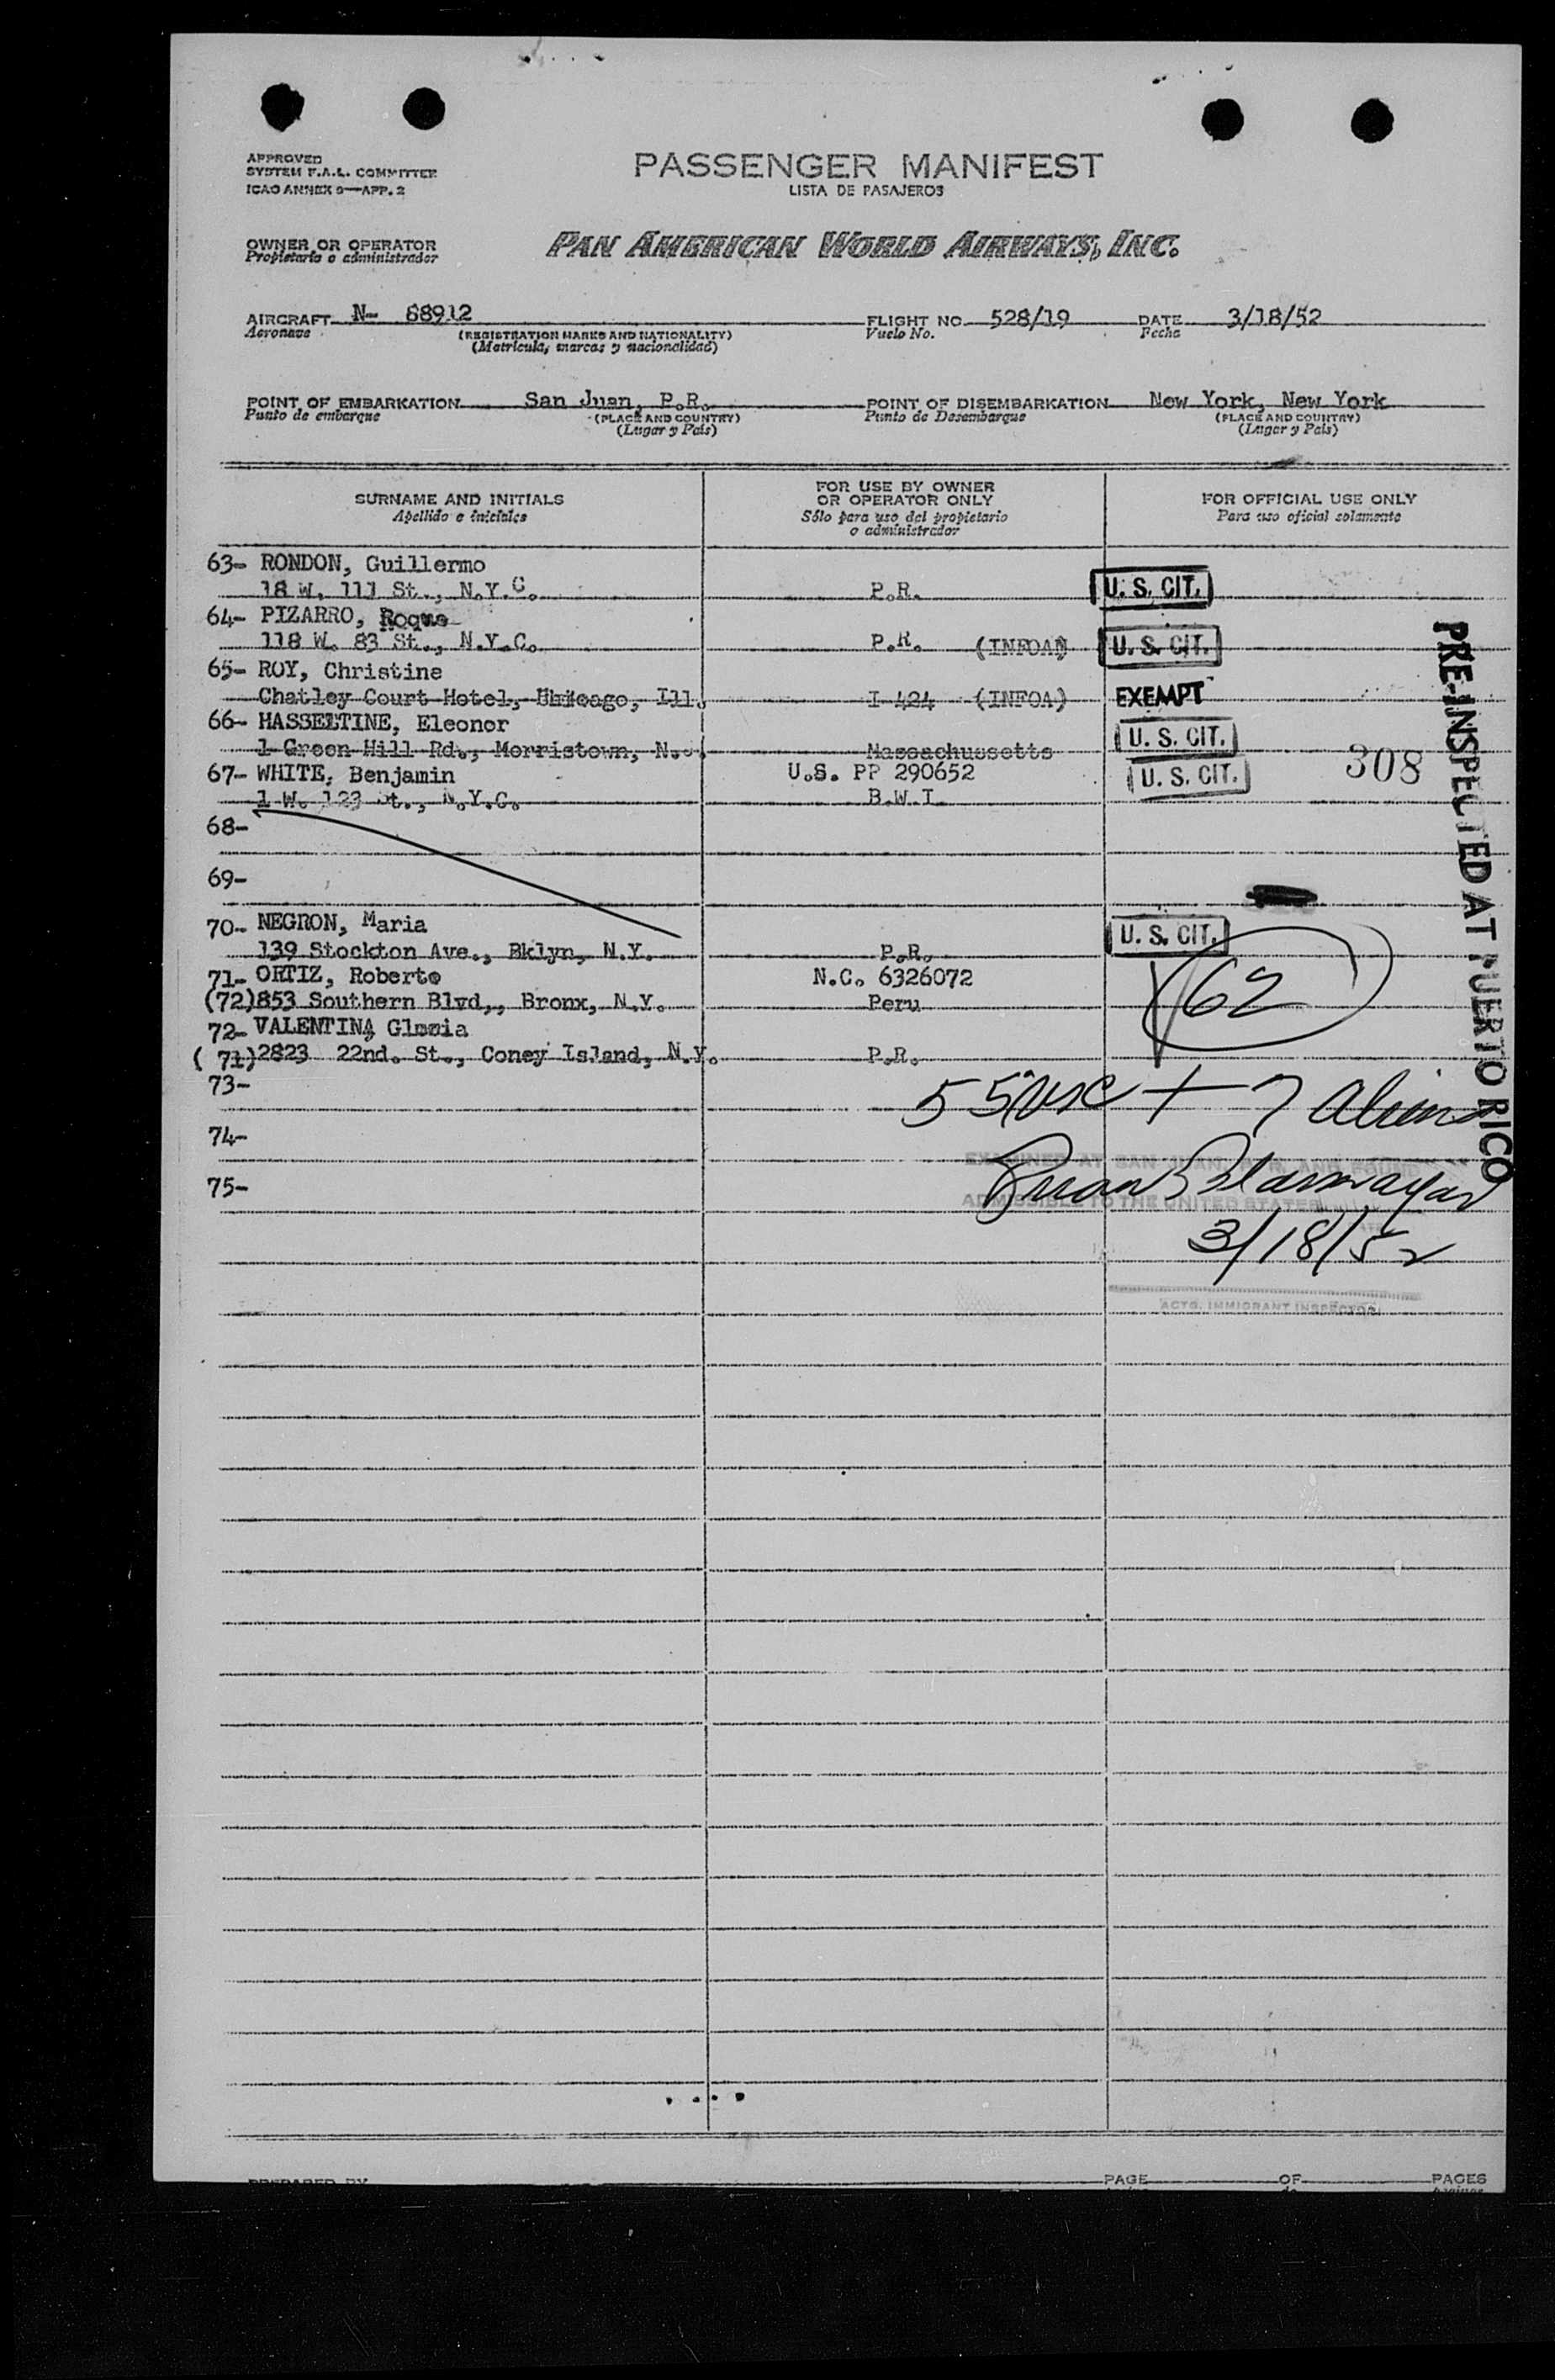 APPROVED
SYSTEM F.A.L. COMMITTEE
ICAO ANNEX 9—APP. 2
PASSENGER MANIFEST
LISTA DE PASAJEROS
OWNER OR OPERATOR
Propietario o administrador
PAN AMERICAN WORLD AIRWAYS, INC.
AIRCRAFT N- 88912
Aeronave
(REGISTRATION MARKS AND NATIONALITY)
(Matrícula, marcas y nacionalidad)
FLIGHT NO. 528/19
Vuelo No.
DATE 3/18/52
Fecha
POINT OF EMBARKATION San Juan, P.R.
Punto de embarque
(PLACE AND COUNTRY)
(Lugar y País)
POINT OF DISEMBARKATION New York, New York
Punto de Desembarque
(PLACE AND COUNTRY)
(Lugar y País)
SURNAME AND INITIALS
Apellido e iniciales
FOR USE BY OWNER
OR OPERATOR ONLY
Sólo para uso del propietario
o administrador
FOR OFFICIAL USE ONLY
Para uso oficial solamente
63- RONDON, Guillermo
18 W. 111 St., N.Y.C. P.R. U. S. CIT.
64- PIZARRO, Roque
118 W. 83 St., N.Y.C. P.R. (INFOA) U. S. CIT.
65- ROY, Christine
Chatley Court Hotel, Chicago, Ill. I 424 (INFOA) EXEMPT
66- HASSELTINE, Eleonor
1 Green Hill Rd., Morristown, N.J. Massachussetts U. S. CIT.
67- WHITE, Benjamin U.S. PP 290652 U. S. CIT. 308
1 W. 123 St., N.Y.C. B.W.I.
68-
69-
70- NEGRON, Maria
139 Stockton Ave., Bklyn, N.Y. P.R. U. S. CIT.
71- ORTIZ, Roberto N.C. 6326072
(72) 853 Southern Blvd,, Bronx, N.Y. Peru 62
72- VALENTINA, Gloria
(71) 2823 22nd. St., Coney Island, N.Y. P.R.
73-
55 USC + 7 aliens
74-
EXAMINED AT SAN JUAN, P. R. AND FOUND
75-
ADMISSIBLE TO THE UNITED STATES
3/18/52
ACTG. IMMIGRANT INSPECTOR
PRE-INSPECTED AT PUERTO RICO
PREPARED BY
PAGE OF PAGES